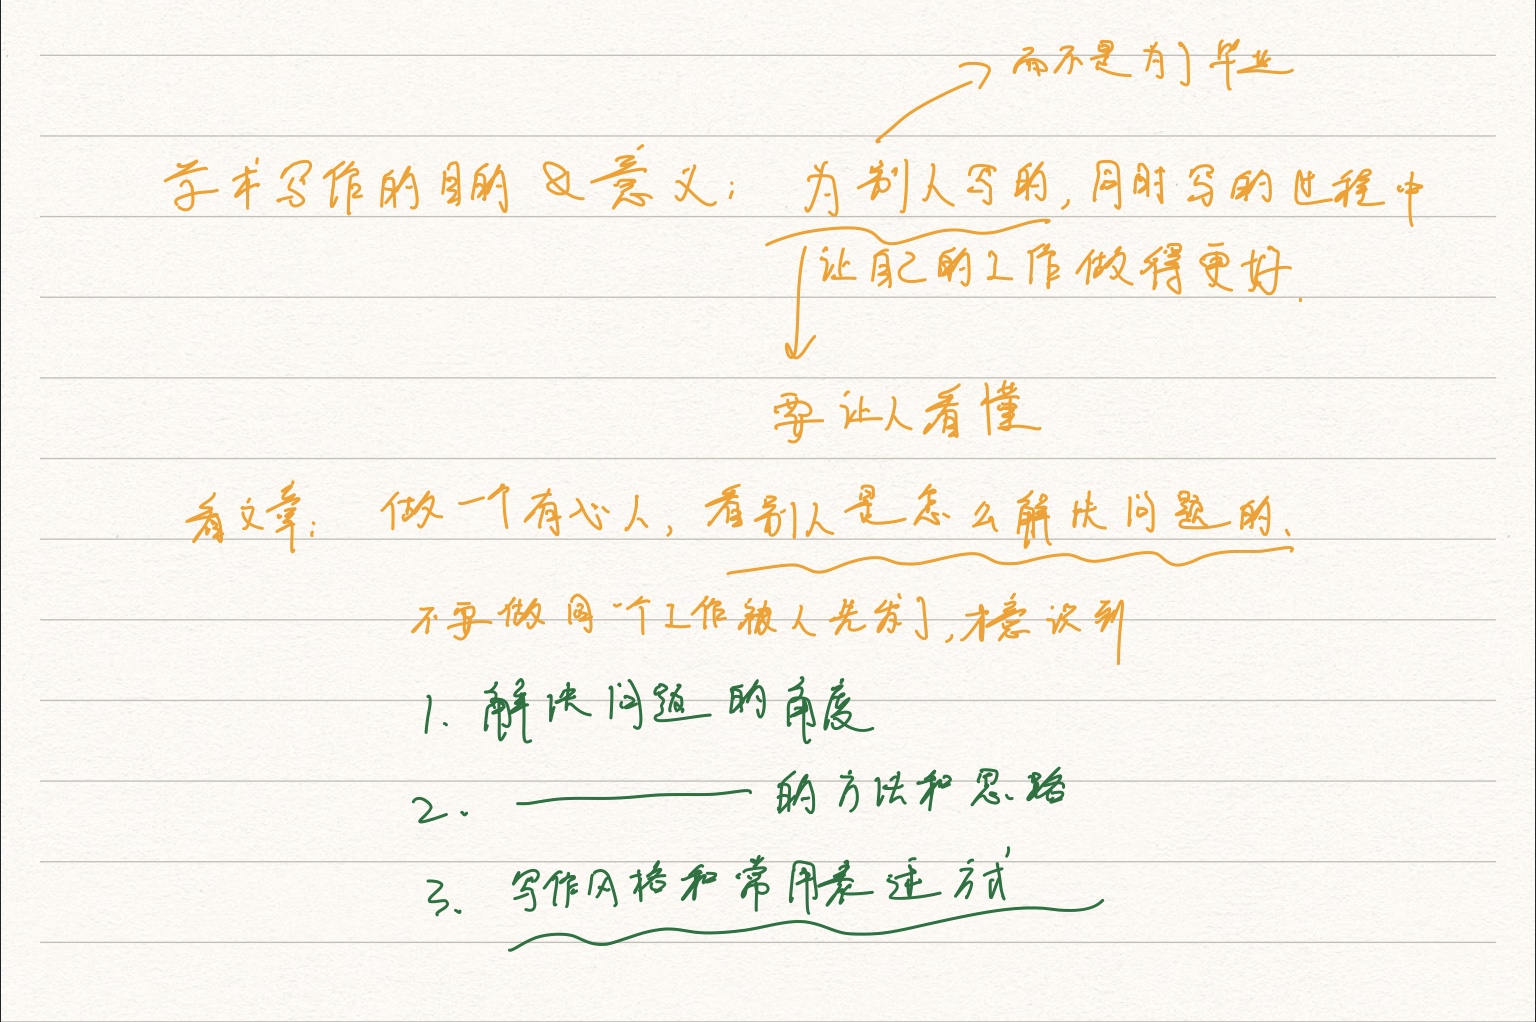 而不是为了毕业
学术写作的目的 & 意义: 为别人写的,同时写的过程中
让自己的工作做得更好.
要让人看懂
看文章: 做一个有心人,看别人是怎么解决问题的、
不要做同一个工作被人先发了,才意识到
1. 解决问题的角度
2. —— 的方法和思路
3. 写作风格和常用表述方式